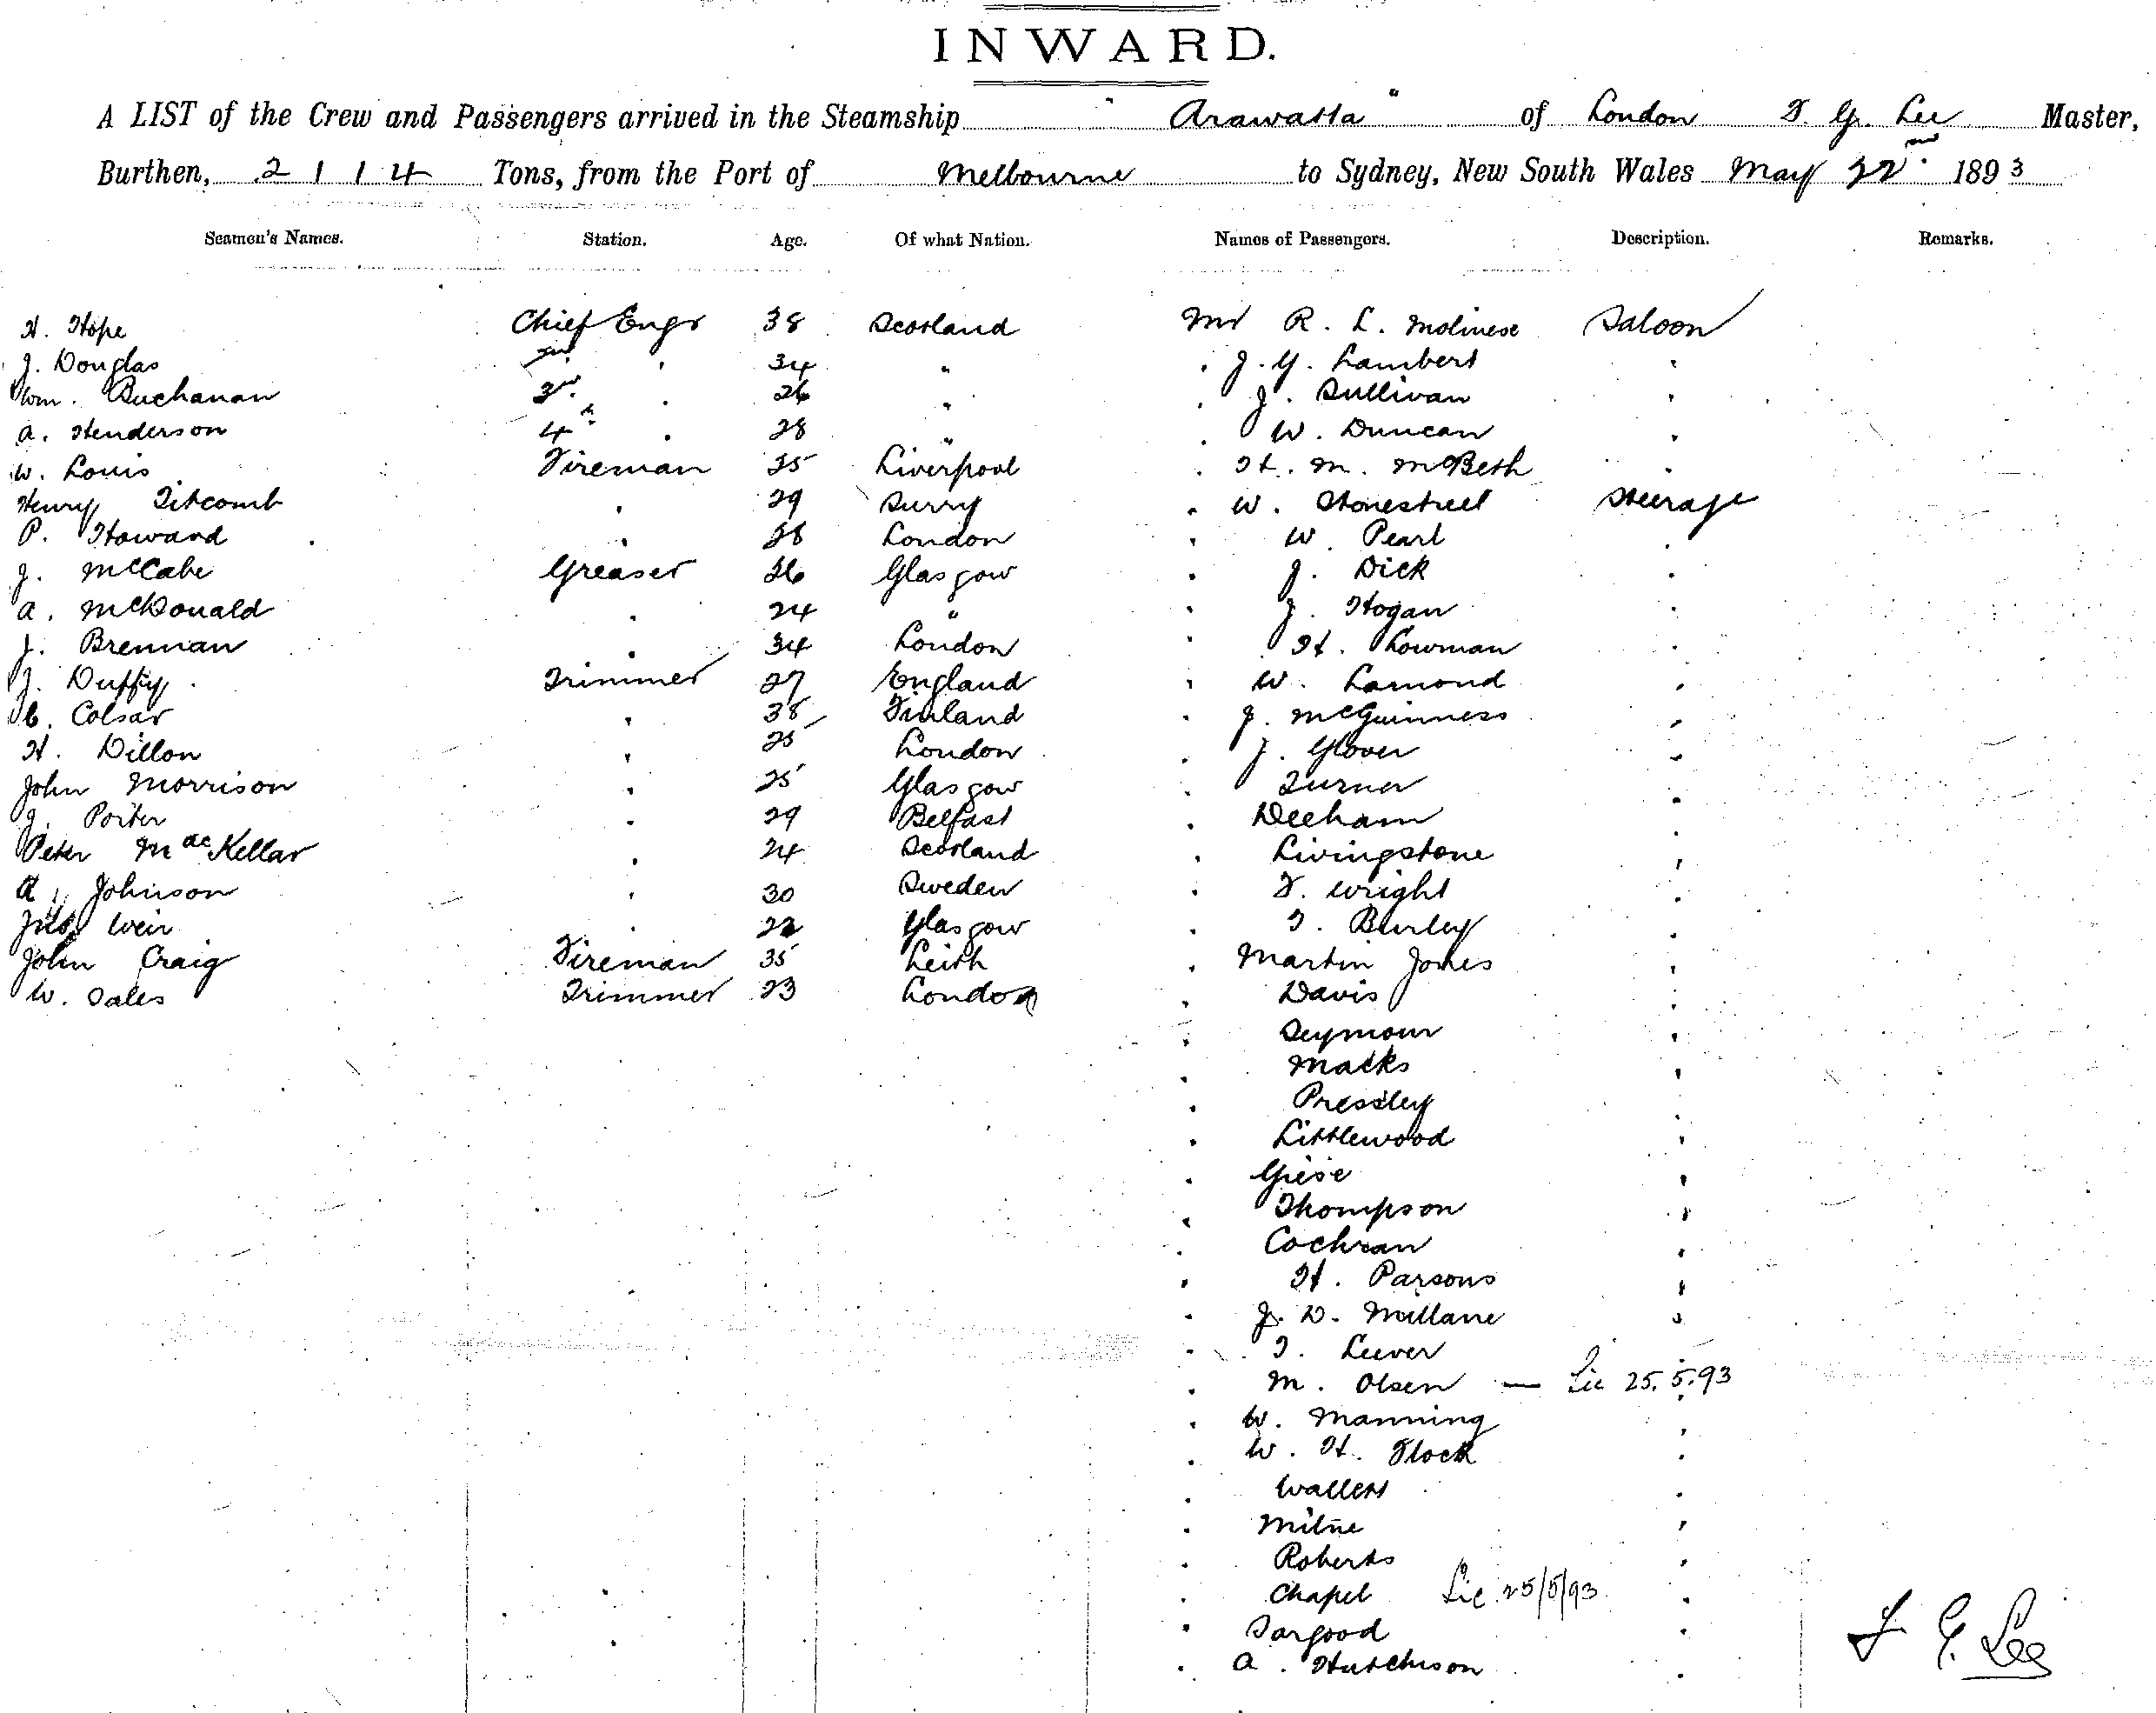 INWARD.
A LIST of the Crew and Passengers arrived in the Steamship "Arawatta" of London F. G. Lee Master,
Burthen, 2114 Tons, from the Port of Melbourne to Sydney, New South Wales May 22nd 1893
Seamen's Names. Station. Age. Of what Nation. Names of Passengers. Description. Remarks.
H. Hope Chief Engr 38 Scotland Mr R. L. Molinese Saloon
J. Douglas 34 " . J. Y. Lambert "
Wm. Buchanan 3rd . 26 " . J. Sullivan "
A. Henderson 4th . 28 " . W. Duncan "
W. Louis Fireman 25 Liverpool . H. M. McBeth "
Henry Titcomb . 29 Surry . W. Stonestreet Steerage
P. Howard . 28 London . W. Pearl .
J. McCabe Greaser 26 Glasgow . J. Dick .
A. McDonald . 24 " . J. Hogan .
J. Brennan . 34 London . H. Lowman .
J. Duffy Trimmer 27 England . W. Lamond .
C. Colsar . 38 Finland . J. McGuinness .
H. Dillon . 25 London . J. Glover .
John Morrison . 25 Glasgow . Turner .
J. Porter . 29 Belfast . Deeham .
Peter MacKellar . 24 Scotland . Livingstone .
A. Johnson . 30 Sweden . F. Wright .
Weir . 22 Glasgow . T. Burley .
John Craig Fireman 35 Leith . Martin Jones .
W. Sales Trimmer 23 London . Davis .
. Seymour .
. Macks .
. Pressley .
. Littlewood .
. Giese .
. Thompson .
. Cochran .
. H. Parsons .
. J. D. Millane .
. T. Leever .
. M. Olsen — Lic 25.5.93
. W. Manning .
. W. H. Flock .
. Wallers .
. Milne .
. Roberts .
. Chapel Lic 25/5/93 .
. Sargood .
. A. Hutchison .
F G. Lee